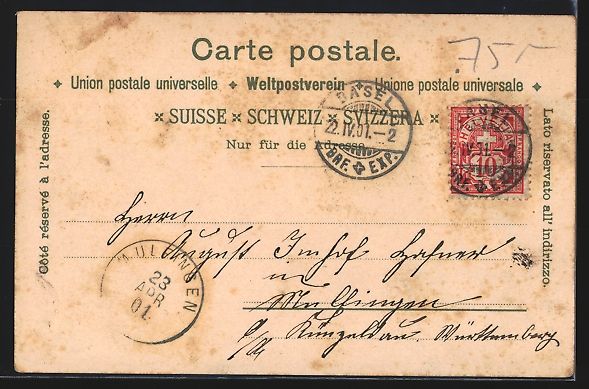 .75.-
Carte postale.
Union postale universelle ✦ Weltpostverein ✦ Unione postale universale
SUISSE × SCHWEIZ × SVIZZERA
Nur für die Adresse
Côté réservé à l'adresse.
Lato riservato all' indirizzo.
BASEL
22.IV.01.-2
BRF. EXP.
HELVETIA
10
BASEL
IV.01.-2
BRF. EXP.
Herrn
August Imhof Hafner
in
Mulfingen
Künzelsau. Württemberg
MULFINGEN
23
APR
01.